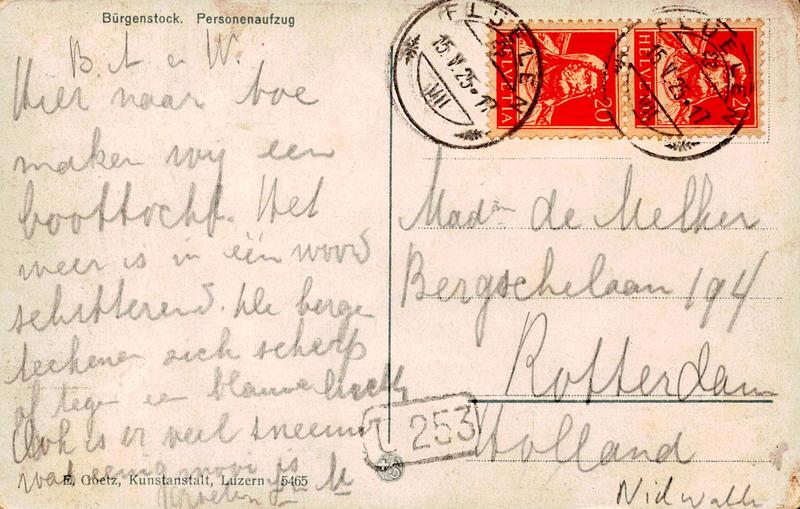 Bürgenstock. Personenaufzug
B. A en W.
Hier naar toe
maken wij een
boottocht. Het
weer is in één woord
schitterend. De bergen
teekenen zich scherp
af tegen een blauwe lucht
Ook is er veel sneeuw
wat eenig mooi is
E. Goetz, Kunstanstalt, Luzern 5465
FLUELEN
15.V.25-17
VIII
HELVETIA
20
FLUELEN
15.V.25-17
HELVETIA
20
Madam de Melker
Bergschelaan 194
Rotterdam
Holland
253
Nidwald